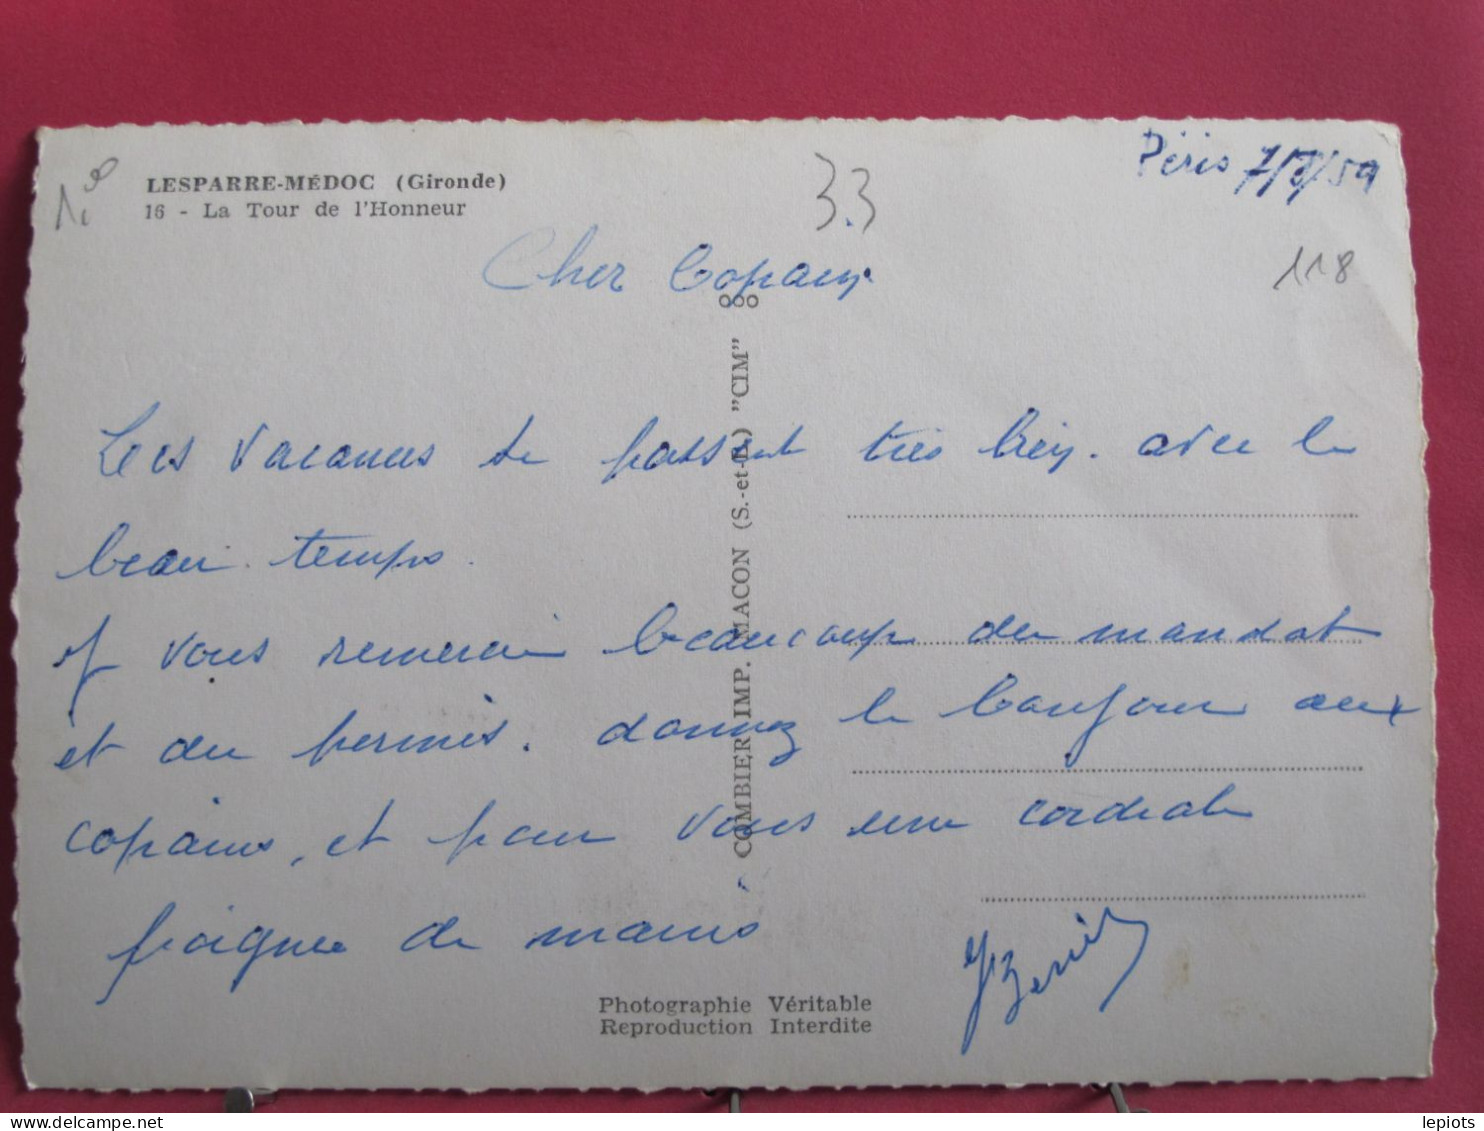 LESPARRE-MÉDOC (Gironde)
16 - La Tour de l'Honneur
33
Péris 7/8/59
118
Cher Copain
Les vacances se passent très bien. avec le
beau temps.
J vous remercie beaucoup du mandat
et du permis. donnez le bonjour aux
copains, et pour vous une cordiale
poignée de mains
COMBIER IMP. MACON (S.-et-L.) "CIM"
Photographie Véritable
Reproduction Interdite
lepiots